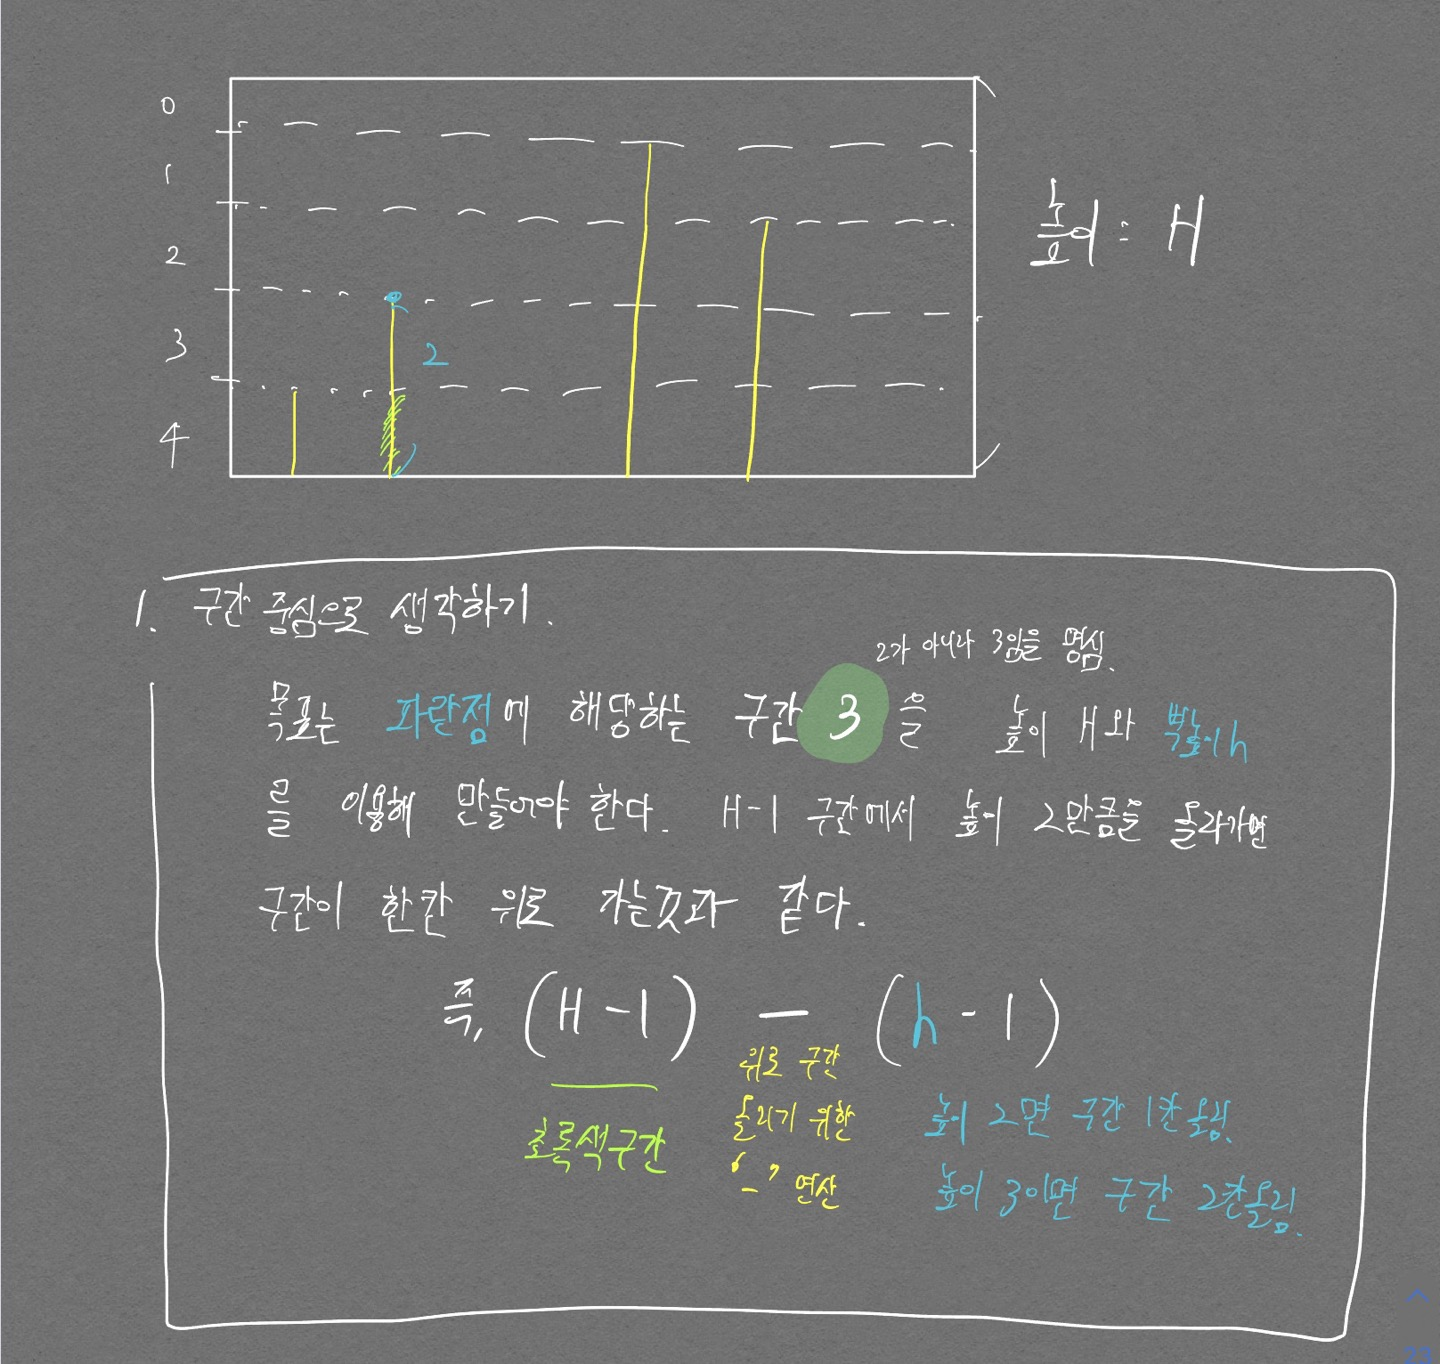 0
1
2
3
4
2
높이 : H
1. 구간 중심으로 생각하기.
2가 아니라 3임을 명심.
목표는 파란점에 해당하는 구간 3 을 높이 H와 벽높이 h
를 이용해 만들어야 한다. H-1 구간에서 높이 2만큼을 올라가면
구간이 한칸 위로 가는것과 같다.
즉, (H-1) - (h-1)
초록색구간
위로 구간
올리기 위한
'-' 연산
높이 2면 구간 1칸올림.
높이 3이면 구간 2칸올림.